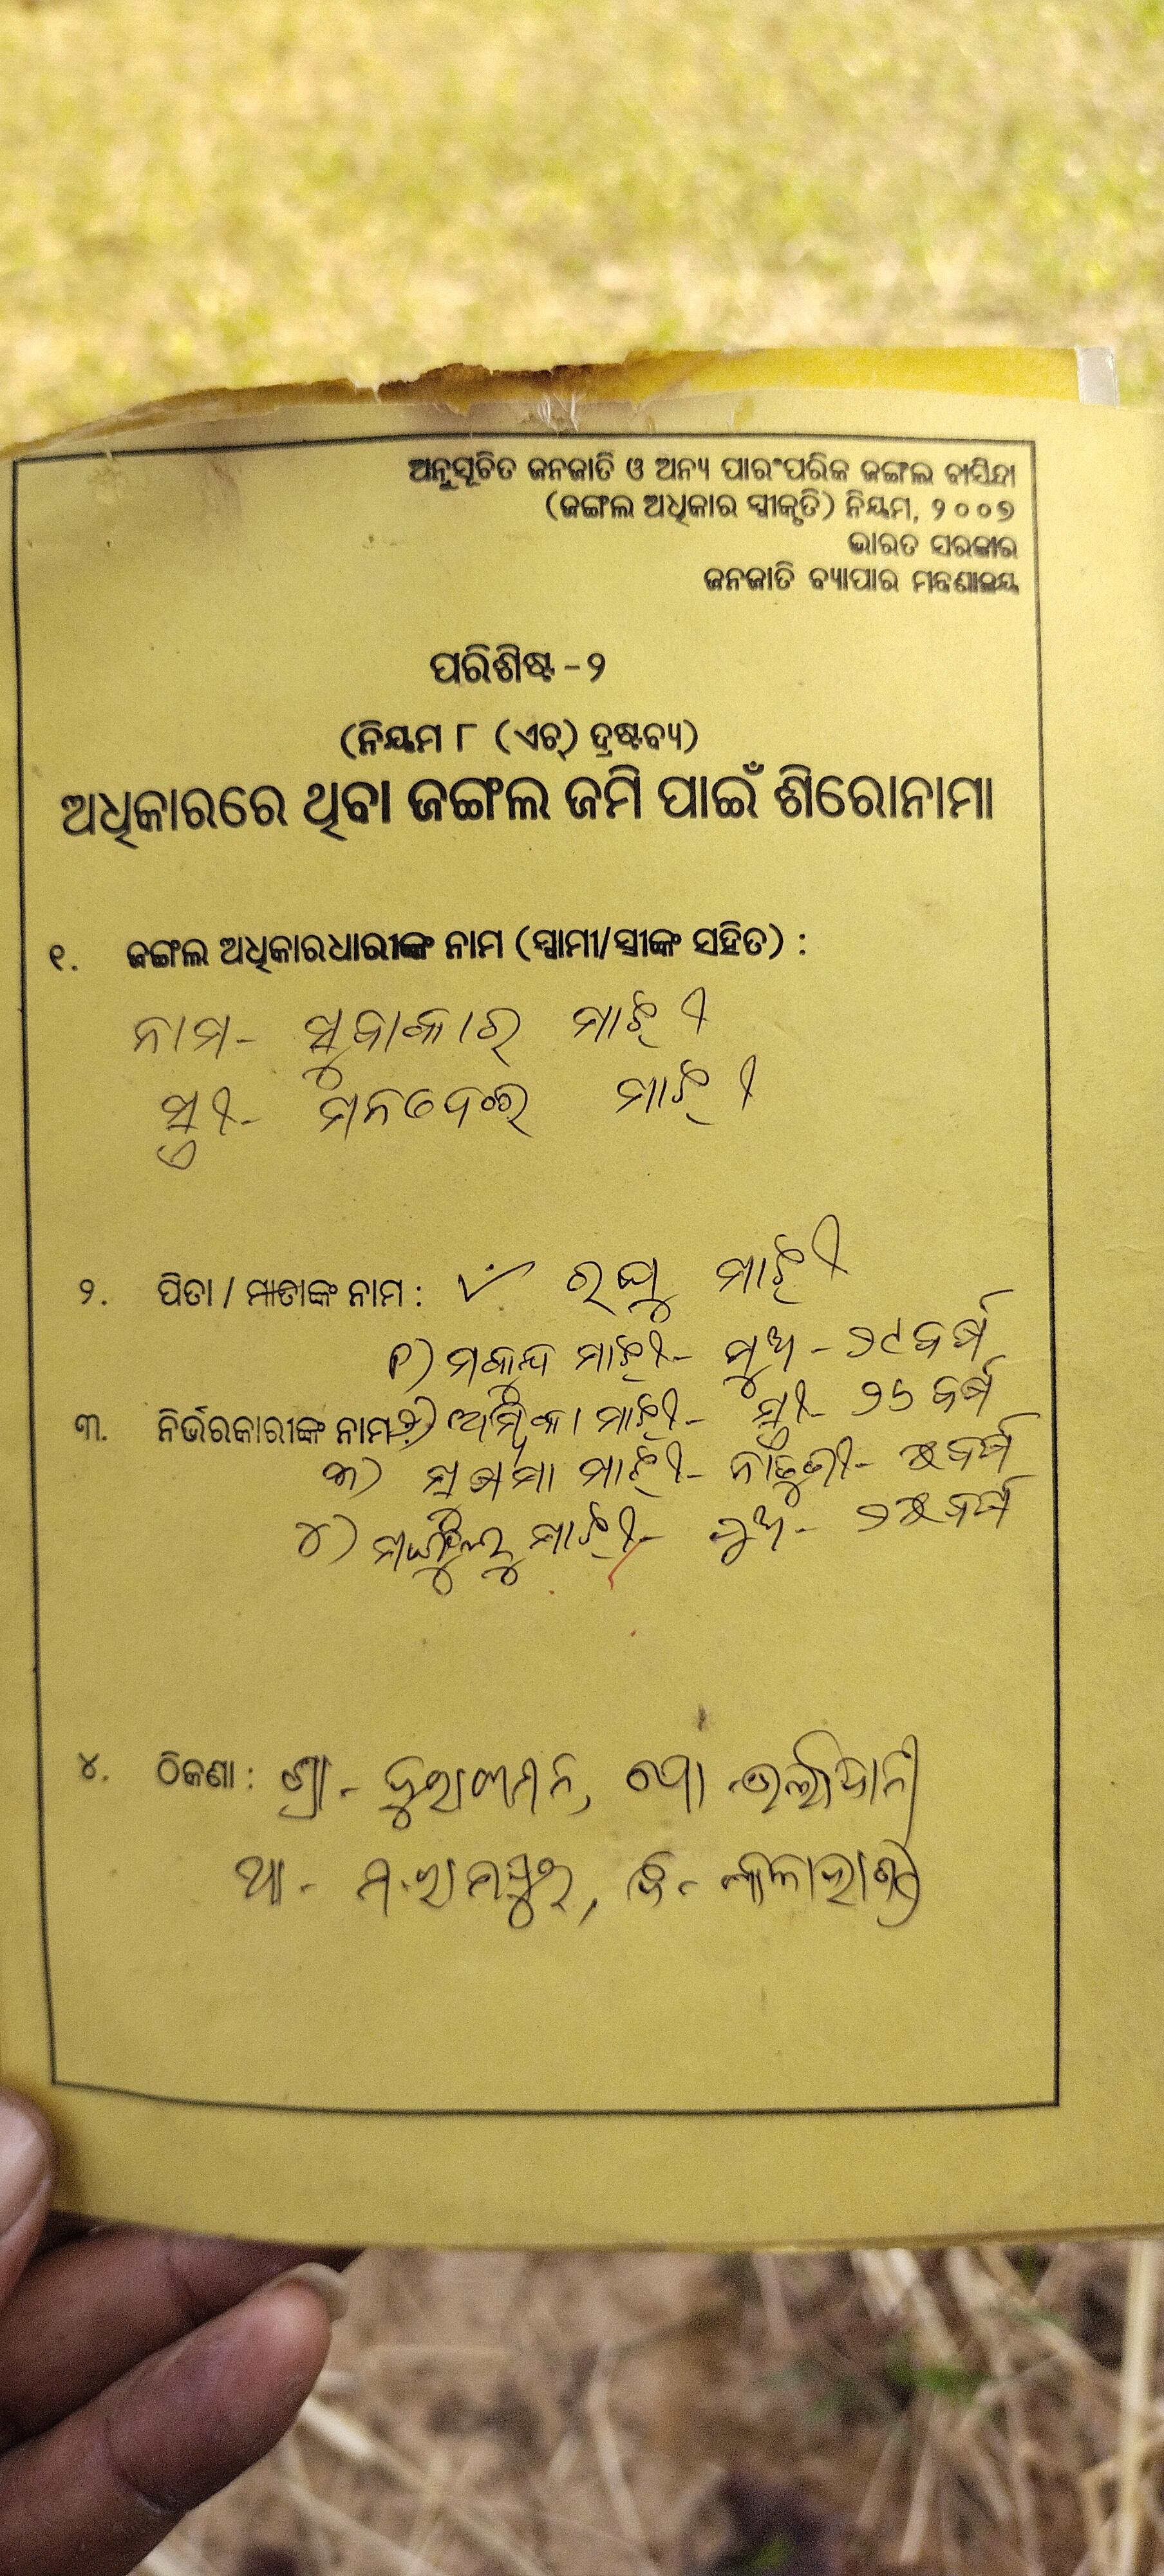 ଅନୁସୂଚିତ ଜନଜାତି ଓ ଅନ୍ୟ ପାରଂପରିକ ଜଙ୍ଗଲ ବାସିନ୍ଦା
(ଜଙ୍ଗଲ ଅଧିକାର ସ୍ୱୀକୃତି) ନିୟମ, ୨୦୦୭
ଭାରତ ସରକାର
ଜନଜାତି ବ୍ୟାପାର ମନ୍ତ୍ରଣାଳୟ
ପରିଶିଷ୍ଟ - ୨
(ନିୟମ ୮ (ଏଚ୍) ଦ୍ରଷ୍ଟବ୍ୟ)
ଅଧିକାରରେ ଥିବା ଜଙ୍ଗଲ ଜମି ପାଇଁ ଶିରୋନାମା
୧. ଜଙ୍ଗଲ ଅଧିକାରଧାରୀଙ୍କ ନାମ (ସ୍ୱାମୀ/ସ୍ତ୍ରୀଙ୍କ ସହିତ) :
ନାମ- ସୁବାକାର ମାଝୀ
ସ୍ତ୍ରୀ- ମାଝୀ
୨. ପିତା / ମାତାଙ୍କ ନାମ : ରଘୁ ମାଝୀ
୧) ମକୁନ୍ଦ ମାଝୀ- ପୁଅ - ୨୯ ବର୍ଷ
୩. ନିର୍ଭରକାରୀଙ୍କ ନାମ ୨) ଅମ୍ବିକା ମାଝୀ- ସ୍ତ୍ରୀ- ୨୬ ବର୍ଷ
୩) ସୁଷମା ମାଝୀ- ନାତୁଣୀ- ୫ ବର୍ଷ
୪) ମାଝୀ- ପୁଅ- ୨୫ ବର୍ଷ
୪. ଠିକଣା : ଗ୍ରା- ପୋ-
ଥା- ମ.ରାମପୁର, ଜି- କଳାହାଣ୍ଡି